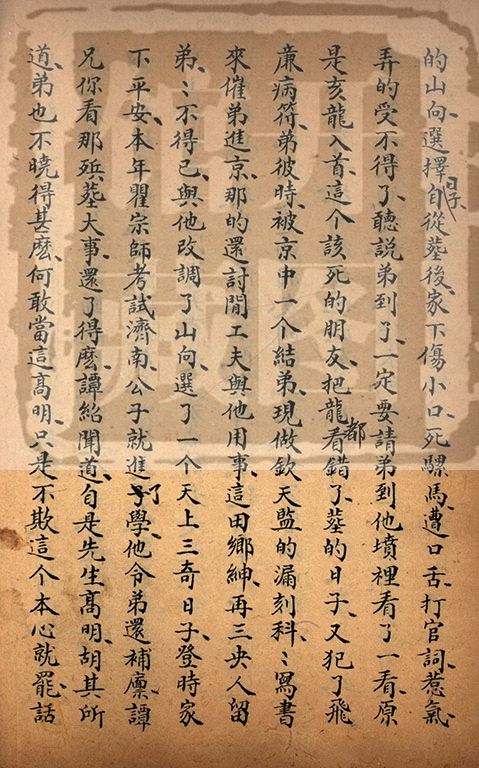 的山向、選擇日子、自從塟後、家下傷小口、死騾馬、遭口舌、打官詞、惹氣
弄的受不得了、聽説弟到了、一定要請弟到他墳裡看了一看、原
是亥龍入首、這个該死的朋友、把龍都看錯了、塟的日子、又犯了飛
廉病符、弟彼時、被京中一个結弟、現做欽天監的漏刻科〻寫書
來催弟進京、那的還討閒工夫與他用事、這田鄉紳、再三央人留
弟〻不得已、與他改調了山向、選了一个天上三奇日子、登時家
下平安、本年瞿宗師考試濟南、公子就進了學、他令弟還補廩、譚
兄你看那殯塟大事、還了得麽、譚紹聞道、自是先生高明、胡其所
道、弟也不曉得甚麽、何敢當這高明、只是不欺這个本心就罷、話